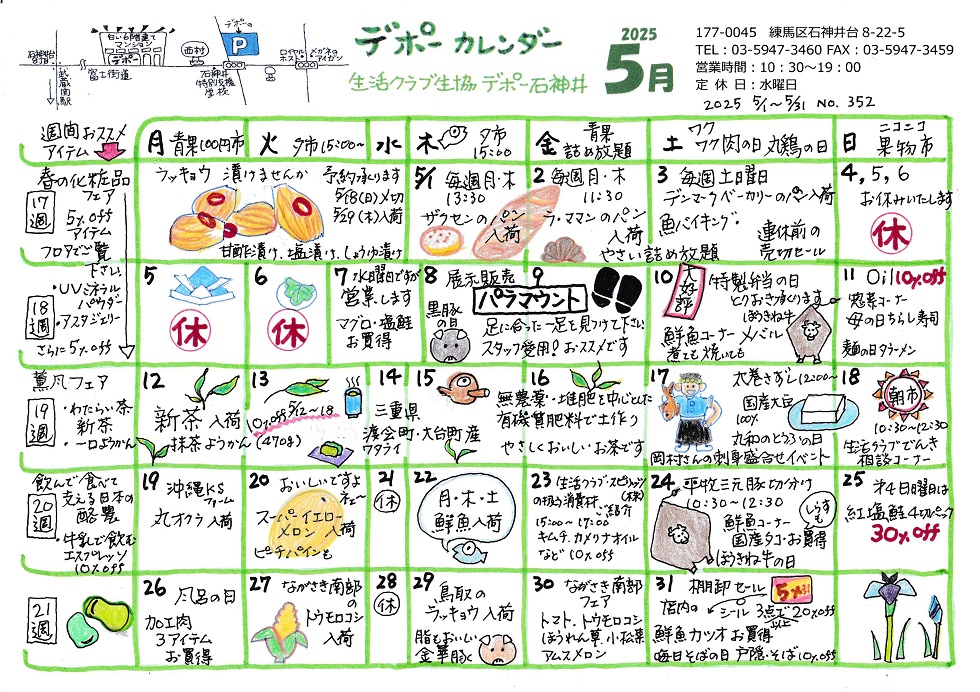 デポー カレンダー
2025
5月
生活クラブ生協 デポー石神井
177-0045 練馬区石神井台 8-22-5
TEL：03-5947-3460 FAX：03-5947-3459
営業時間：10：30～19：00
定 休 日：水曜日
2025 5/1～5/31 NO. 352
白い6階建て
マンション
デポー
西村
デポーの
P
ロイヤル
ホスト
メガネの
アイガン
富士街道
武蔵関駅
石神井
特別支援
学校
週間おススメ
アイテム
月 青果100円市
火 夕市15:00~
水
木 夕市
15:00~
金 青果
詰め放題
土 ワク
ワク 肉の日 丸鶏の日
日 ニコニコ
果物市
春の化粧品
フェア
5%off
アイテム
17週
フロアでご覧
下さい。
・UVミネラル
パウダー
・アスタジェリー
さらに5%off
18週
ラッキョウ 漬けませんか 予約承ります
5/18(日)〆切
5/29(木)入荷
甘酢漬け、塩漬け、しょうゆ漬け
5/1 毎週月・木
13:30
ザクセンのパン
入荷
2 毎週月・木
11:30
ラ・ママンのパン
入荷
3 毎週土曜日
デンマークベーカリーのパン入荷
魚バイキング
連休前の
売切セール
やさい詰め放題
4,5,6
お休みいたします
休
5
休
6
休
7 水曜日ですが
営業します
マグロ・塩鮭
お買得
8 展示販売
黒豚
の日
9
パラマウント
足に合った一足を見つけて下さい
スタッフ愛用！おススメです
10
大好評
特製弁当の日
とりおき承ります
ほうきね牛
鮮魚コーナー メバル
煮ても焼いても
11 Oil10%off
惣菜コーナー
母の日ちらし寿司
麺の日ラーメン
薫風フェア
19週
・わたらい茶
新茶
・一口ようかん
12
新茶 入荷
抹茶ようかん(470g)
13
10%off 5/12~18
14
三重県
度会町・大台町産
ワタライ
15
16
無農薬・堆肥を中心とした
有機質肥料で土作り
やさしくおいしいお茶です
17 太巻きずし12:00~
国産大豆
100%
丸和のとうふの日
岡村さんの刺身盛合せイベント
18
朝市
10:30~12:30
生活クラブでんき
相談コーナー
飲んで食べて
支える日本の
酪農
20週
・牛乳で飲む
エスプレッソ
10%off
19 沖縄KS
ファーム
丸オクラ入荷
20 おいしいですよ
ネェ~
スーパーイエロー
メロン 入荷
ピーチパインも
21
休
22
月・木・土
鮮魚入荷
23 生活クラブ・スピリッツ
(株)
の扱う消費材 ご紹介
15:00~17:00
キムチ、カメリナオイル
など 10%off
24 平牧三元豚切り分け
10:30~12:30
しらすも
鮮魚コーナー
国産タコ・お買得
ほうきね牛の日
25 第4日曜日は
紅塩鮭4切パック
30%off
21週
26 風呂の日
加工肉
3アイテム
お買得
27 ながさき南部
の
トウモロコシ
入荷
28
休
29 鳥取の
ラッキョウ 入荷
脂もおいしい
金華豚
30 ながさき南部
フェア
トマト、トウモロコシ
ほうれん草、小松菜
アムスメロン
31 棚卸セール
店内の
シール 3点で20%off
以上
鮮魚カツオ お買得
毎日そばの日 戸隠・そば10%off